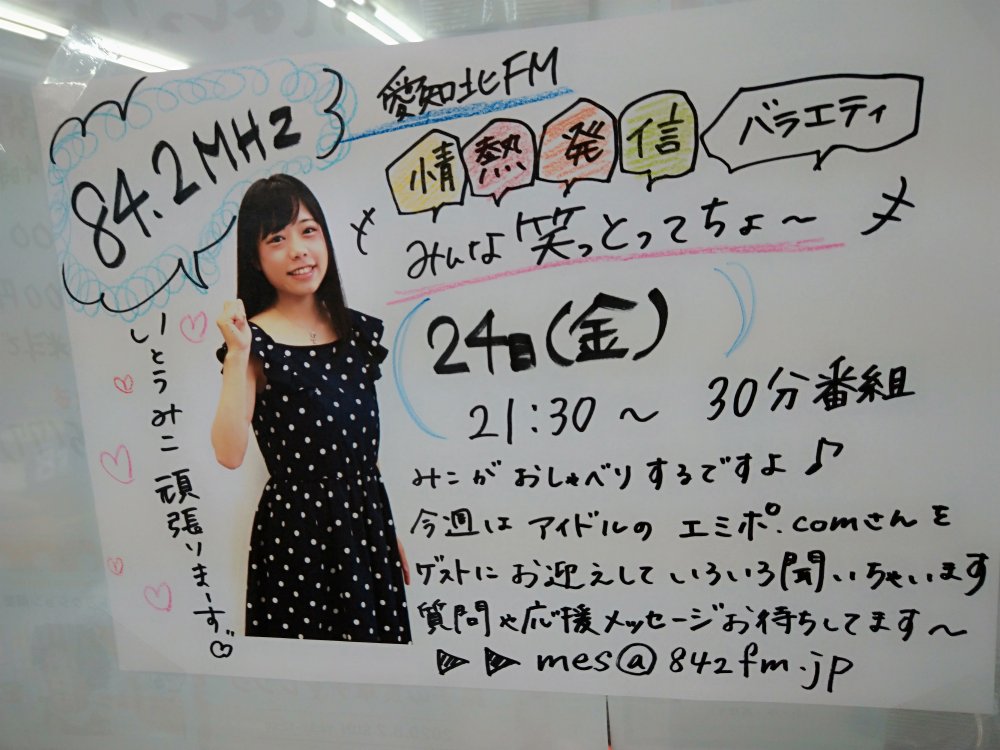 84.2MHz
愛知北FM
情熱発信
バラエティ
みんな笑っとってちょ〜
24日(金)
21:30〜 30分番組
みこがおしゃべりするですよ♪
今週はアイドルのエミポ.comさんを
ゲストにお迎えしていろいろ聞いちゃいます
質問や応援メッセージお待ちしてます〜
▶▶mes@842fm.jp
いとうみこ頑張りまーす♡